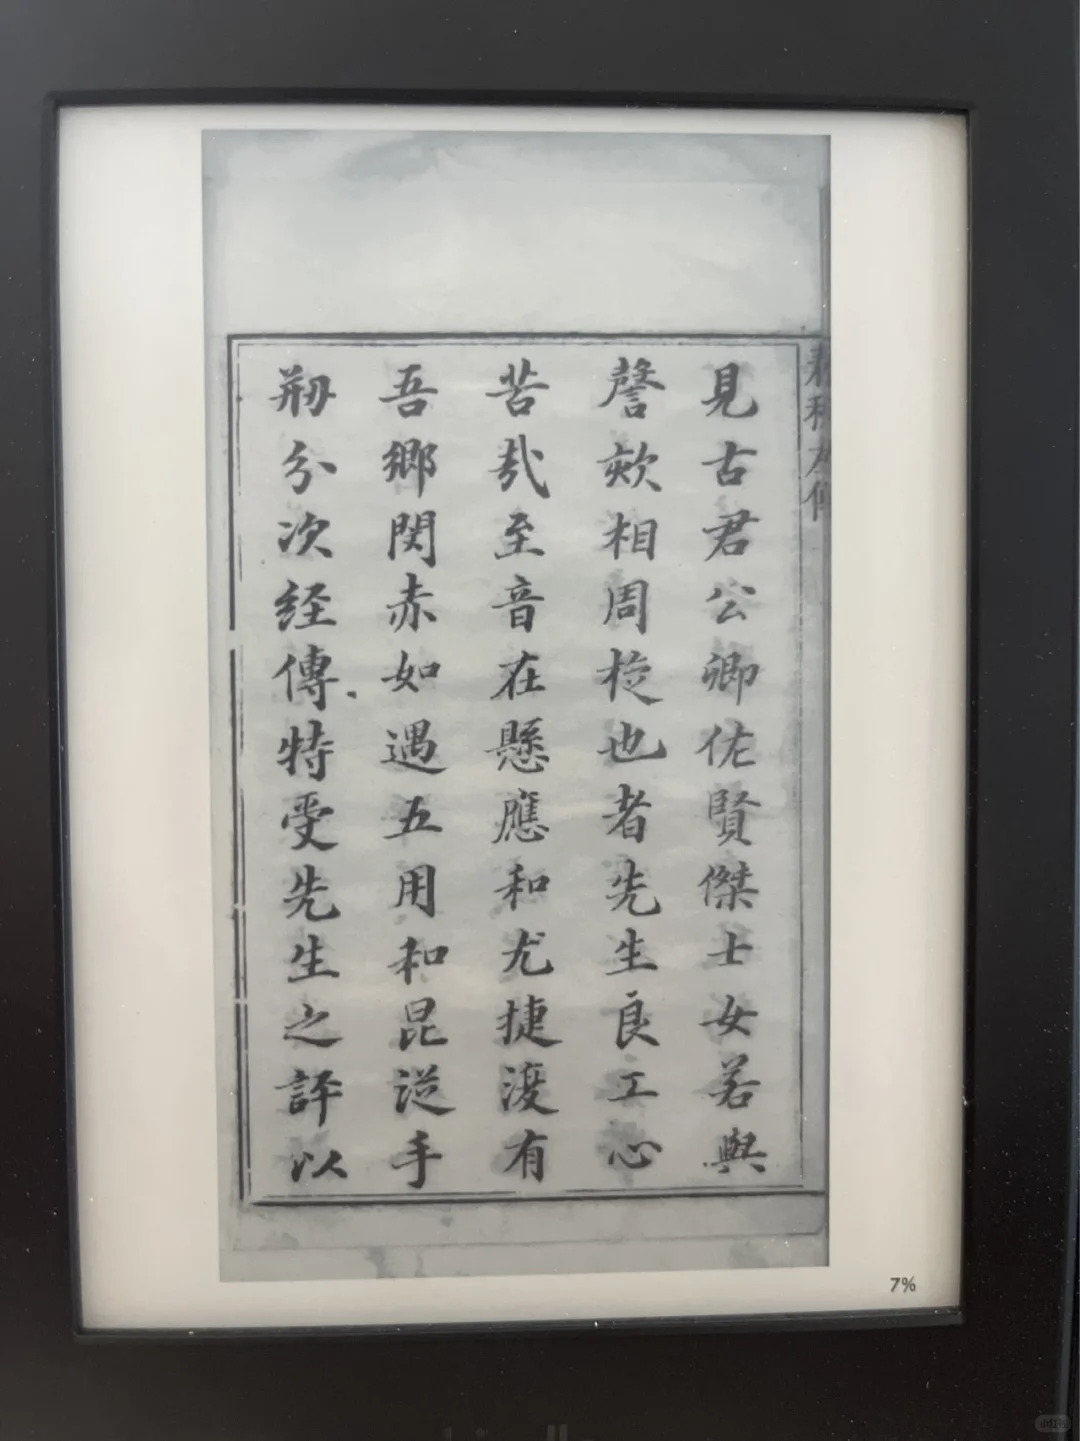 見古君公卿佐賢傑士女若與
謦欬相周旋也者先生良工心
苦哉至音在懸應和尤捷漫有
吾鄉閔赤如遇五用和昆從手
剏分次經傳特受先生之評以
7%